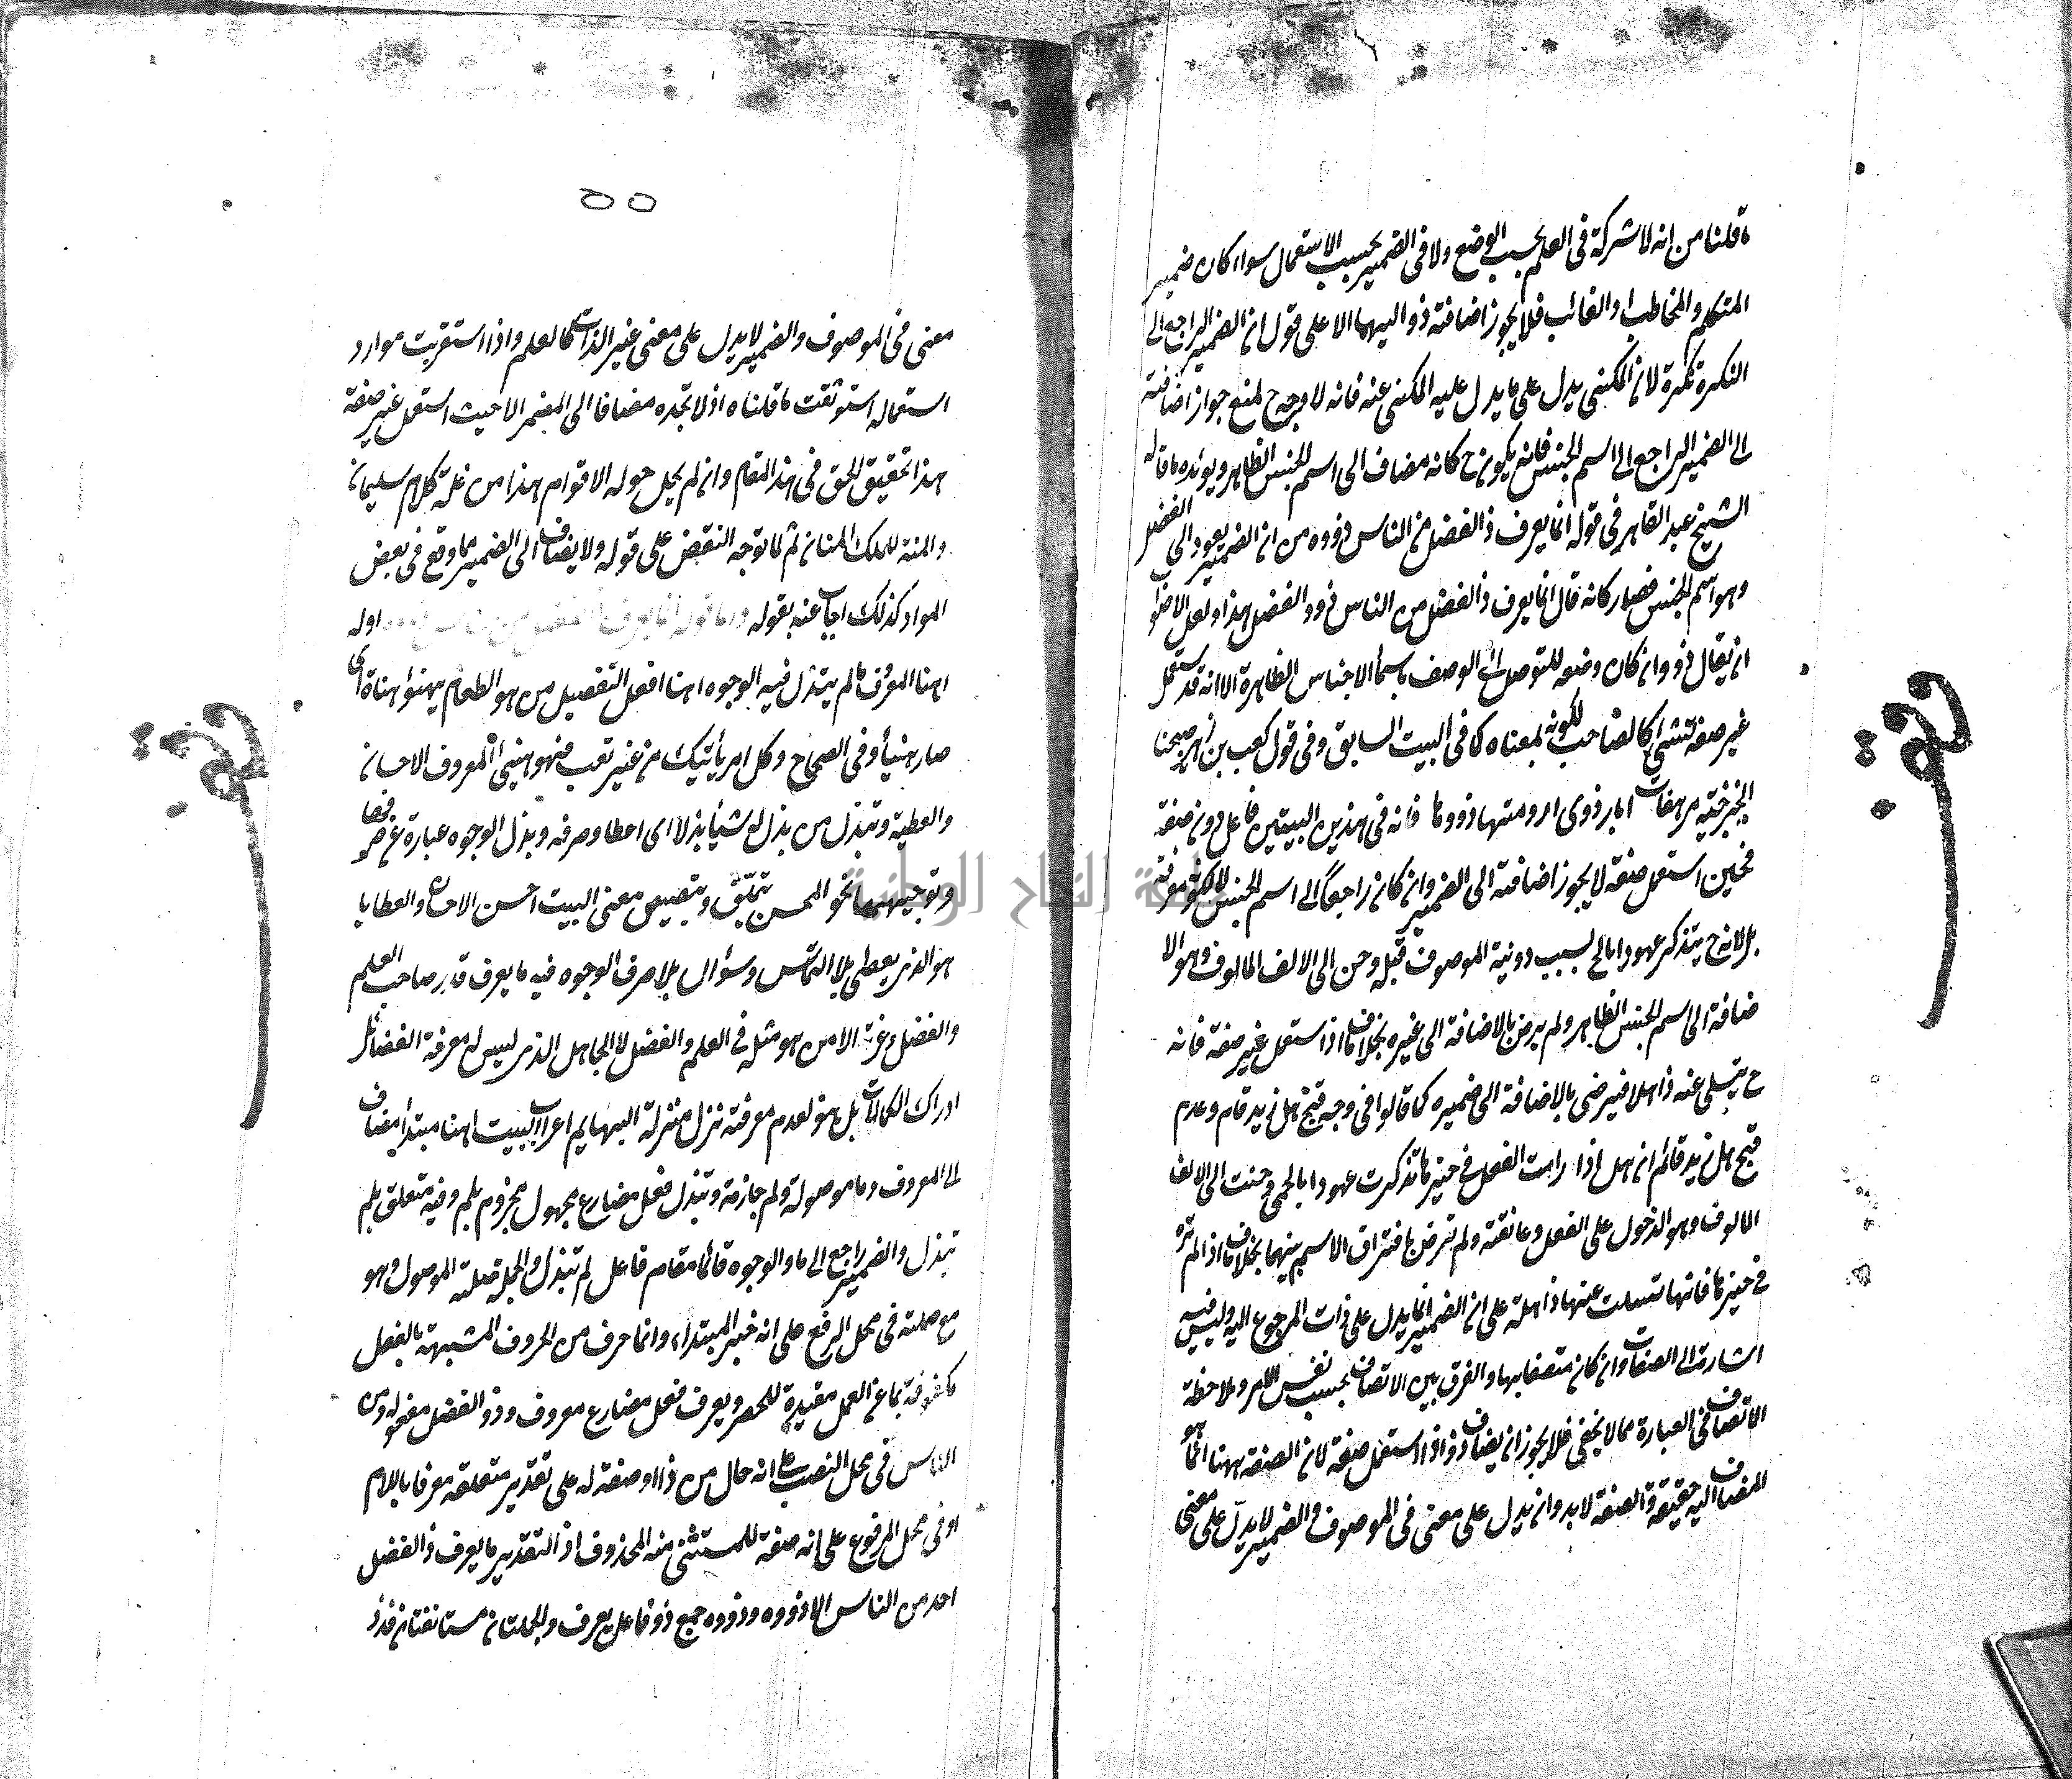 ما قلنا من انه لا شركة فى العلم بحسب الوضع ولا فى الضمير بحسب الاستعمال سواء كان ضمير
المتكلم والمخاطب او الغائب فلا يجوز اضافته ذو اليهما الا على قول ان الضمير الراجع الى
النكرة نكرة لان المكنى يدل على ما يدل عليه المكنى عنه فانه لا وجه ح لمنع جواز اضافته
الى الضمير الراجع الى اسم الجنس فانه يكون ح كانه مضاف الى اسم الجنس الظاهر ويؤيده ما قاله
الشيخ عبد القاهر فى قوله انما يعرف ذا الفضل من الناس ذووه من ان الضمير يعود الى الفضل
وهو اسم الجنس فصار كانه قال انما يعرف ذا الفضل من الناس ذوو الفضل هذا ولعل الاصوا
ان يقال ذو وان كان وضعه للتوصل الى الوصف باسماء الاجناس الظاهرة الا انه قد يستعمل
غير صفة لشئ كالصاحب لكونه بمعناه كما فى البيت السابق وفى قول كعب بن زهير صبحنا
الخزرجية مرهفات ابار ذوى ارومتها ذووها فانه فى هذين البيتين فاعل دون صفة
فحين استعمل صفة لا يجوز اضافته الى الضمير وان كان راجعا الى اسم الجنس لا لكونه معرفة
بل لانه ح يتذكر عهودا بالحمى لسبب دونية الموصوف قبله وحن الى الالف المالوف وهو الا
ضافة الى اسم الجنس الظاهر ولم يرض بالاضافة الى غيره بخلاف ما اذا استعمل غير صفة فانه
ح يتسلى عنه ذاهلا فيرضى بالاضافة الى ضميره كما قالوا فى وجه قبح هل زيد قام وعدم
قبح هل زيد قائم ان هل اذا رات الفعل فى حيزها تذكرت عهودا بالحمى وحنت الى الالف
المالوف وهو الدخول على الفعل وعانقته ولم ترض بافتراق الاسم بينهما بخلاف ما اذا لم تره
فى حيزها فانها تسلت عنها ذاهلة على ان الضمير انما يدل على ذات المرجوع اليه وليس فيه
اشارة الى الصفات وان كان متصفا بها والفرق بين الاتصاف بحسب نفس الامر وملاحظة
الاتصاف فى العبارة مما لا يخفى فلا يجوز ان يضاف ذو اذا استعمل صفة لان الصفة ههنا انما هو
المضاف اليه حقيقة والصفة لا بد وان يدل على معنى فى الموصوف والضمير لا يدل على معنى
٥٥
معنى فى الموصوف والضمير لا يدل على معنى غير الذات كالعلم واذا استقريت موارد
استعماله استوثقت ما قلناه اذ لا تجده مضافا الى المضمر الا حيث استعمل غير صفة
هذا تحقيق الحق فى هذا المقام وان لم يحل حوله الاقوام هذا من غلة كلام سليمان
والمنة للملك المنان ثم لما توجه النقض على قوله ولا يضاف الى الضمير بما وقع فى بعض
المواد كذلك اجاب عنه بقوله واما قوله انما يعرف اوله
اهنا المعروف ما لم يبتذل فيه الوجوه اهنا افعل التفضيل من هو الطعام يهنؤ هناة اى
صار هنيأ وفى الصحاح وكل امر يأتيك من غير تعب فهو هنيئ المعروف الاحسان
والعطية وتبتذل من بذل له شيأ بذلا اى اعطا وصرفه وبذل الوجوه عبارة عن صرفها
وتوجيهها نحو المحسن بتملق وتبصيص معنى البيت احسن الاحسان والعطايا
هو الذى يعطى بلا التماس وسؤال بلا صرف الوجوه فيه ما يعرف قدر صاحب العلم
والفضل وعزة الا من هو مثله فى العلم والفضل لا الجاهل الذى ليس له معرفة الفضائل
ادراك الكمالات بل هو لعدم معرفته نزل منزلة البهايم اعراب البيت اهنا مبتدأ مضاف
الى المعروف وما موصولة ولم جازمة وتبتذل فعل مضارع مجهول مجزوم بلم وفيه متعلق بلم
تبتذل والضمير راجع الى ما والوجوه قائما مقام فاعل لم تبتذل والجملة صلة الموصول وهو
مع صلته فى محل الرفع على انه خبر المبتداء وانما حرف من الحروف المشبهة بالفعل
مكفوفة بما عن العمل مفيدة للحصر ويعرف فعل مضارع معروف وذو الفضل مفعوله ومن
الناس فى محل النصب على انه حال من ذا او صفة له على تقدير متعلقه معرفا باللام
او فى محل المرفوع على انه صفة للمستثنى منه المحذوف اذ التقدير ما يعرف ذا الفضل
احد من الناس الا ذووه وذووه جمع ذو فاعل يعرف والجملتان مستانفتان فذو